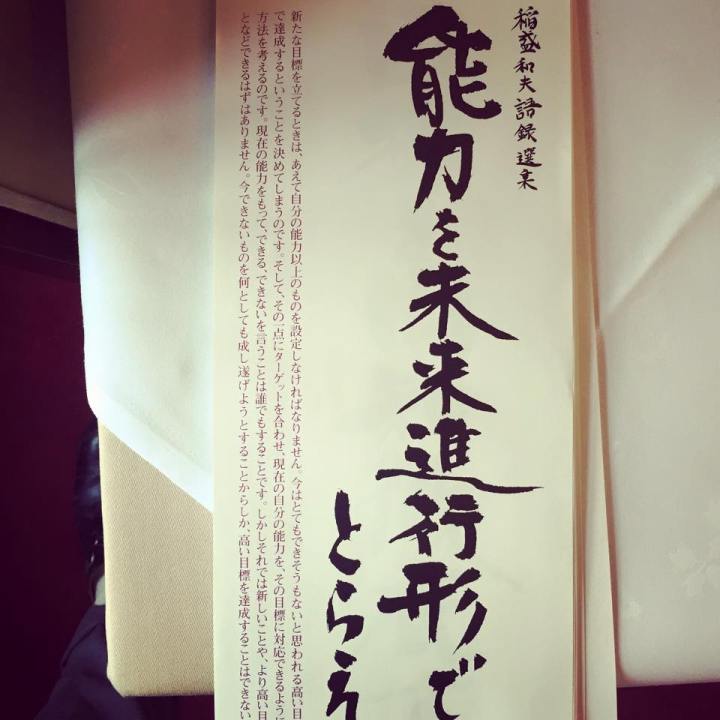 稲盛和夫語録選集
能力を未来進行形で
とらえ
新たな目標を立てるときは、あえて自分の能力以上のものを設定しなければなりません。今はとてもできそうもないと思われる高い目
で達成するということを決めてしまうのです。そして、その一点にターゲットを合わせ、現在の自分の能力を、その目標に対応できるように
方法を考えるのです。現在の能力をもって、できる、できないを言うことは誰でもすることです。しかしそれでは新しいことや、より高い目
となどできるはずはありません。今できないものを何としても成し遂げようとすることからしか、高い目標を達成することはできない